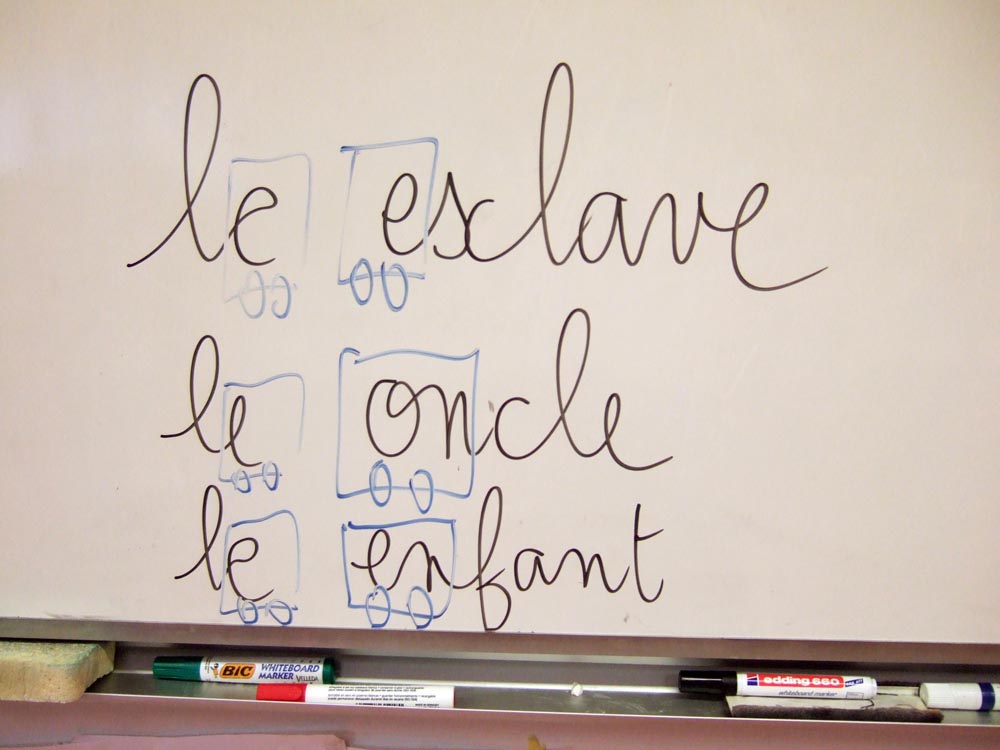 le esclave
le oncle
le enfant
BIC WHITEBOARD MARKER VELLEDA
edding 660
whiteboard marker